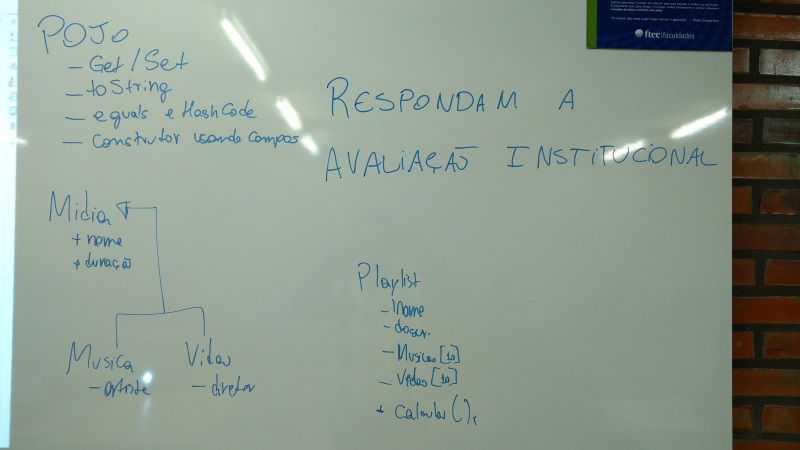 POJO
- Get/Set
- toString
- equals e HashCode
- construtor usando campos
RESPONDAM A
AVALIAÇÃO INSTITUCIONAL
Midia
+ nome
+ duração
Musica
- artista
Video
- diretor
Playlist
- nome
- descr.
- Musicas [10]
- Videos [10]
+ calcular ()
ftec faculdades